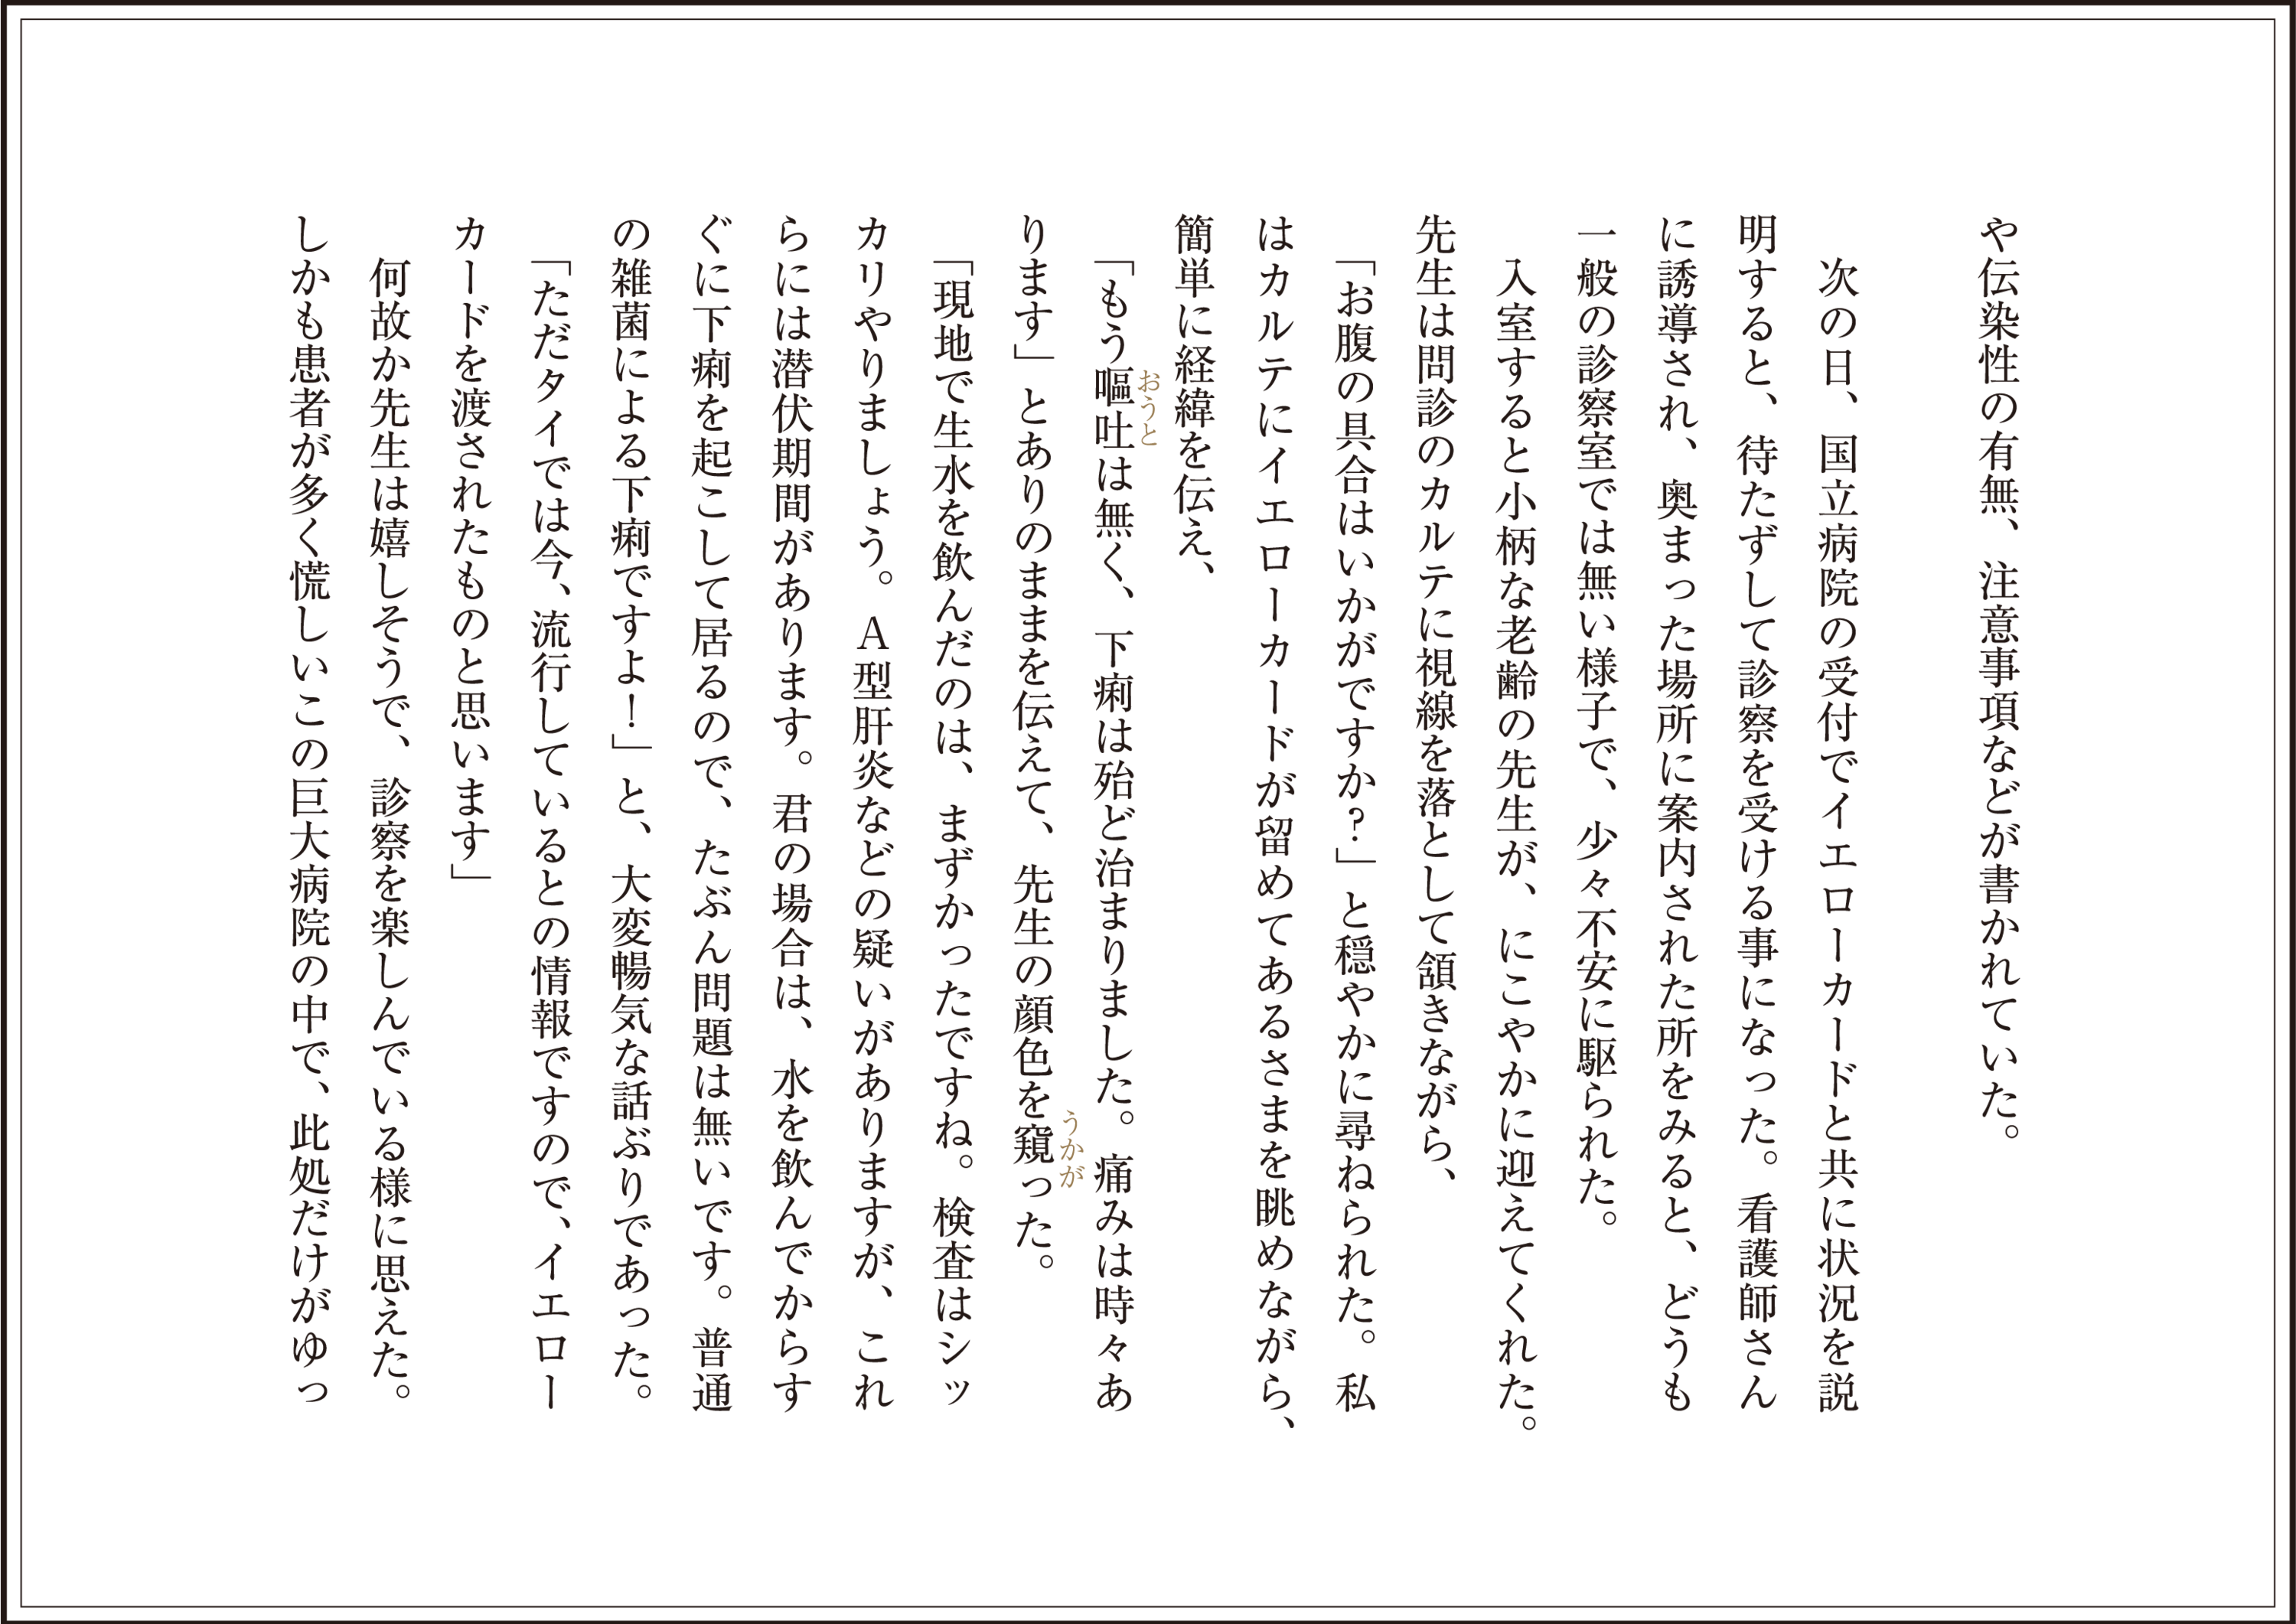 や伝染性の有無、注意事項などが書かれていた。
次の日、国立病院の受付でイエローカードと共に状況を説
明すると、待たずして診察を受ける事になった。看護師さん
に誘導され、奥まった場所に案内された所をみると、どうも
一般の診察室では無い様子で、少々不安に駆られた。
入室すると小柄な老齢の先生が、にこやかに迎えてくれた。
先生は問診のカルテに視線を落として頷きながら、
「お腹の具合はいかがですか？」と穏やかに尋ねられた。私
はカルテにイエローカードが留めてあるさまを眺めながら、
簡単に経緯を伝え、
おうと
「もう嘔吐は無く、下痢は殆ど治まりました。痛みは時々あ
うかが
ります」とありのままを伝えて、先生の顔色を窺った。
「現地で生水を飲んだのは、まずかったですね。検査はシッ
カリやりましょう。A型肝炎などの疑いがありますが、これ
らには潜伏期間があります。君の場合は、水を飲んでからす
ぐに下痢を起こして居るので、たぶん問題は無いです。普通
の雑菌による下痢ですよ！」と、大変暢気な話ぶりであった。
「ただタイでは今、流行しているとの情報ですので、イエロー
カードを渡されたものと思います」
何故か先生は嬉しそうで、診察を楽しんでいる様に思えた。
しかも患者が多く慌しいこの巨大病院の中で、此処だけがゆっ